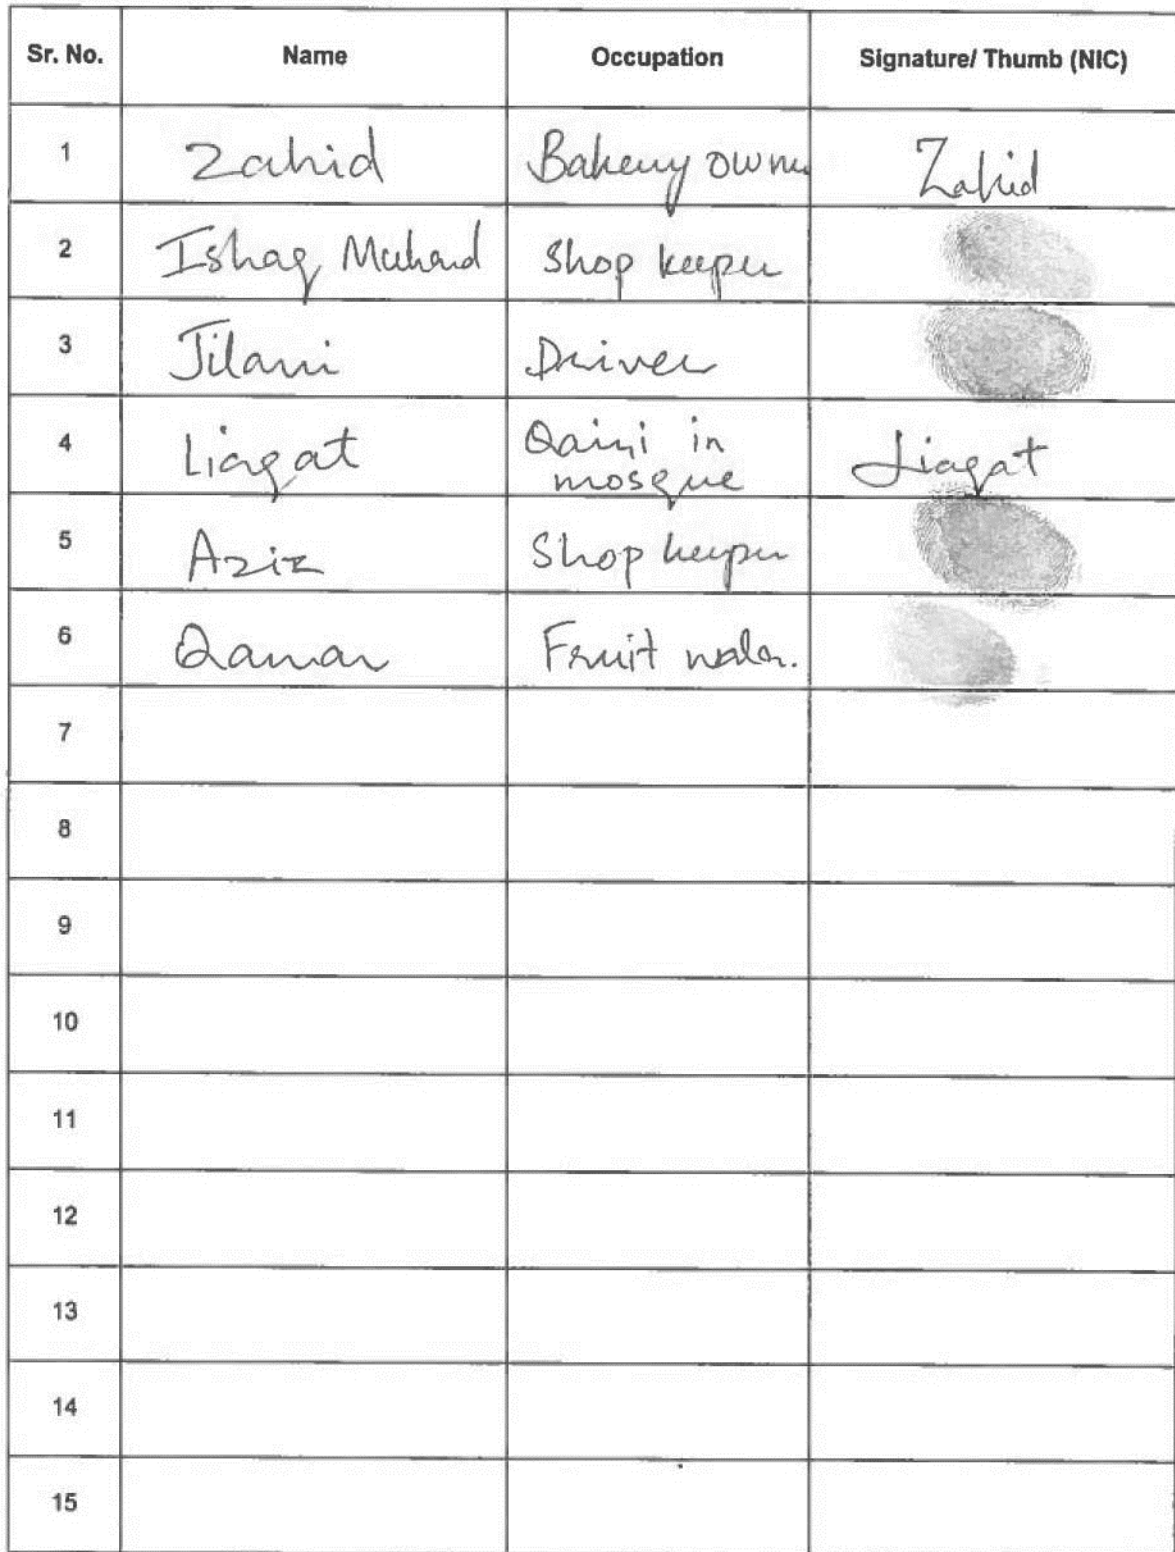 Sr. No. Name Occupation Signature/ Thumb (NIC)
1 Zahid Bakery owner Zahid
2 Ishaq Shop keeper
3 Jilani Driver
4 Liaqat Qaizi in mosque Liaqat
5 Aziz Shop keeper
6 Qamar Fruit wala.
7
8
9
10
11
12
13
14
15